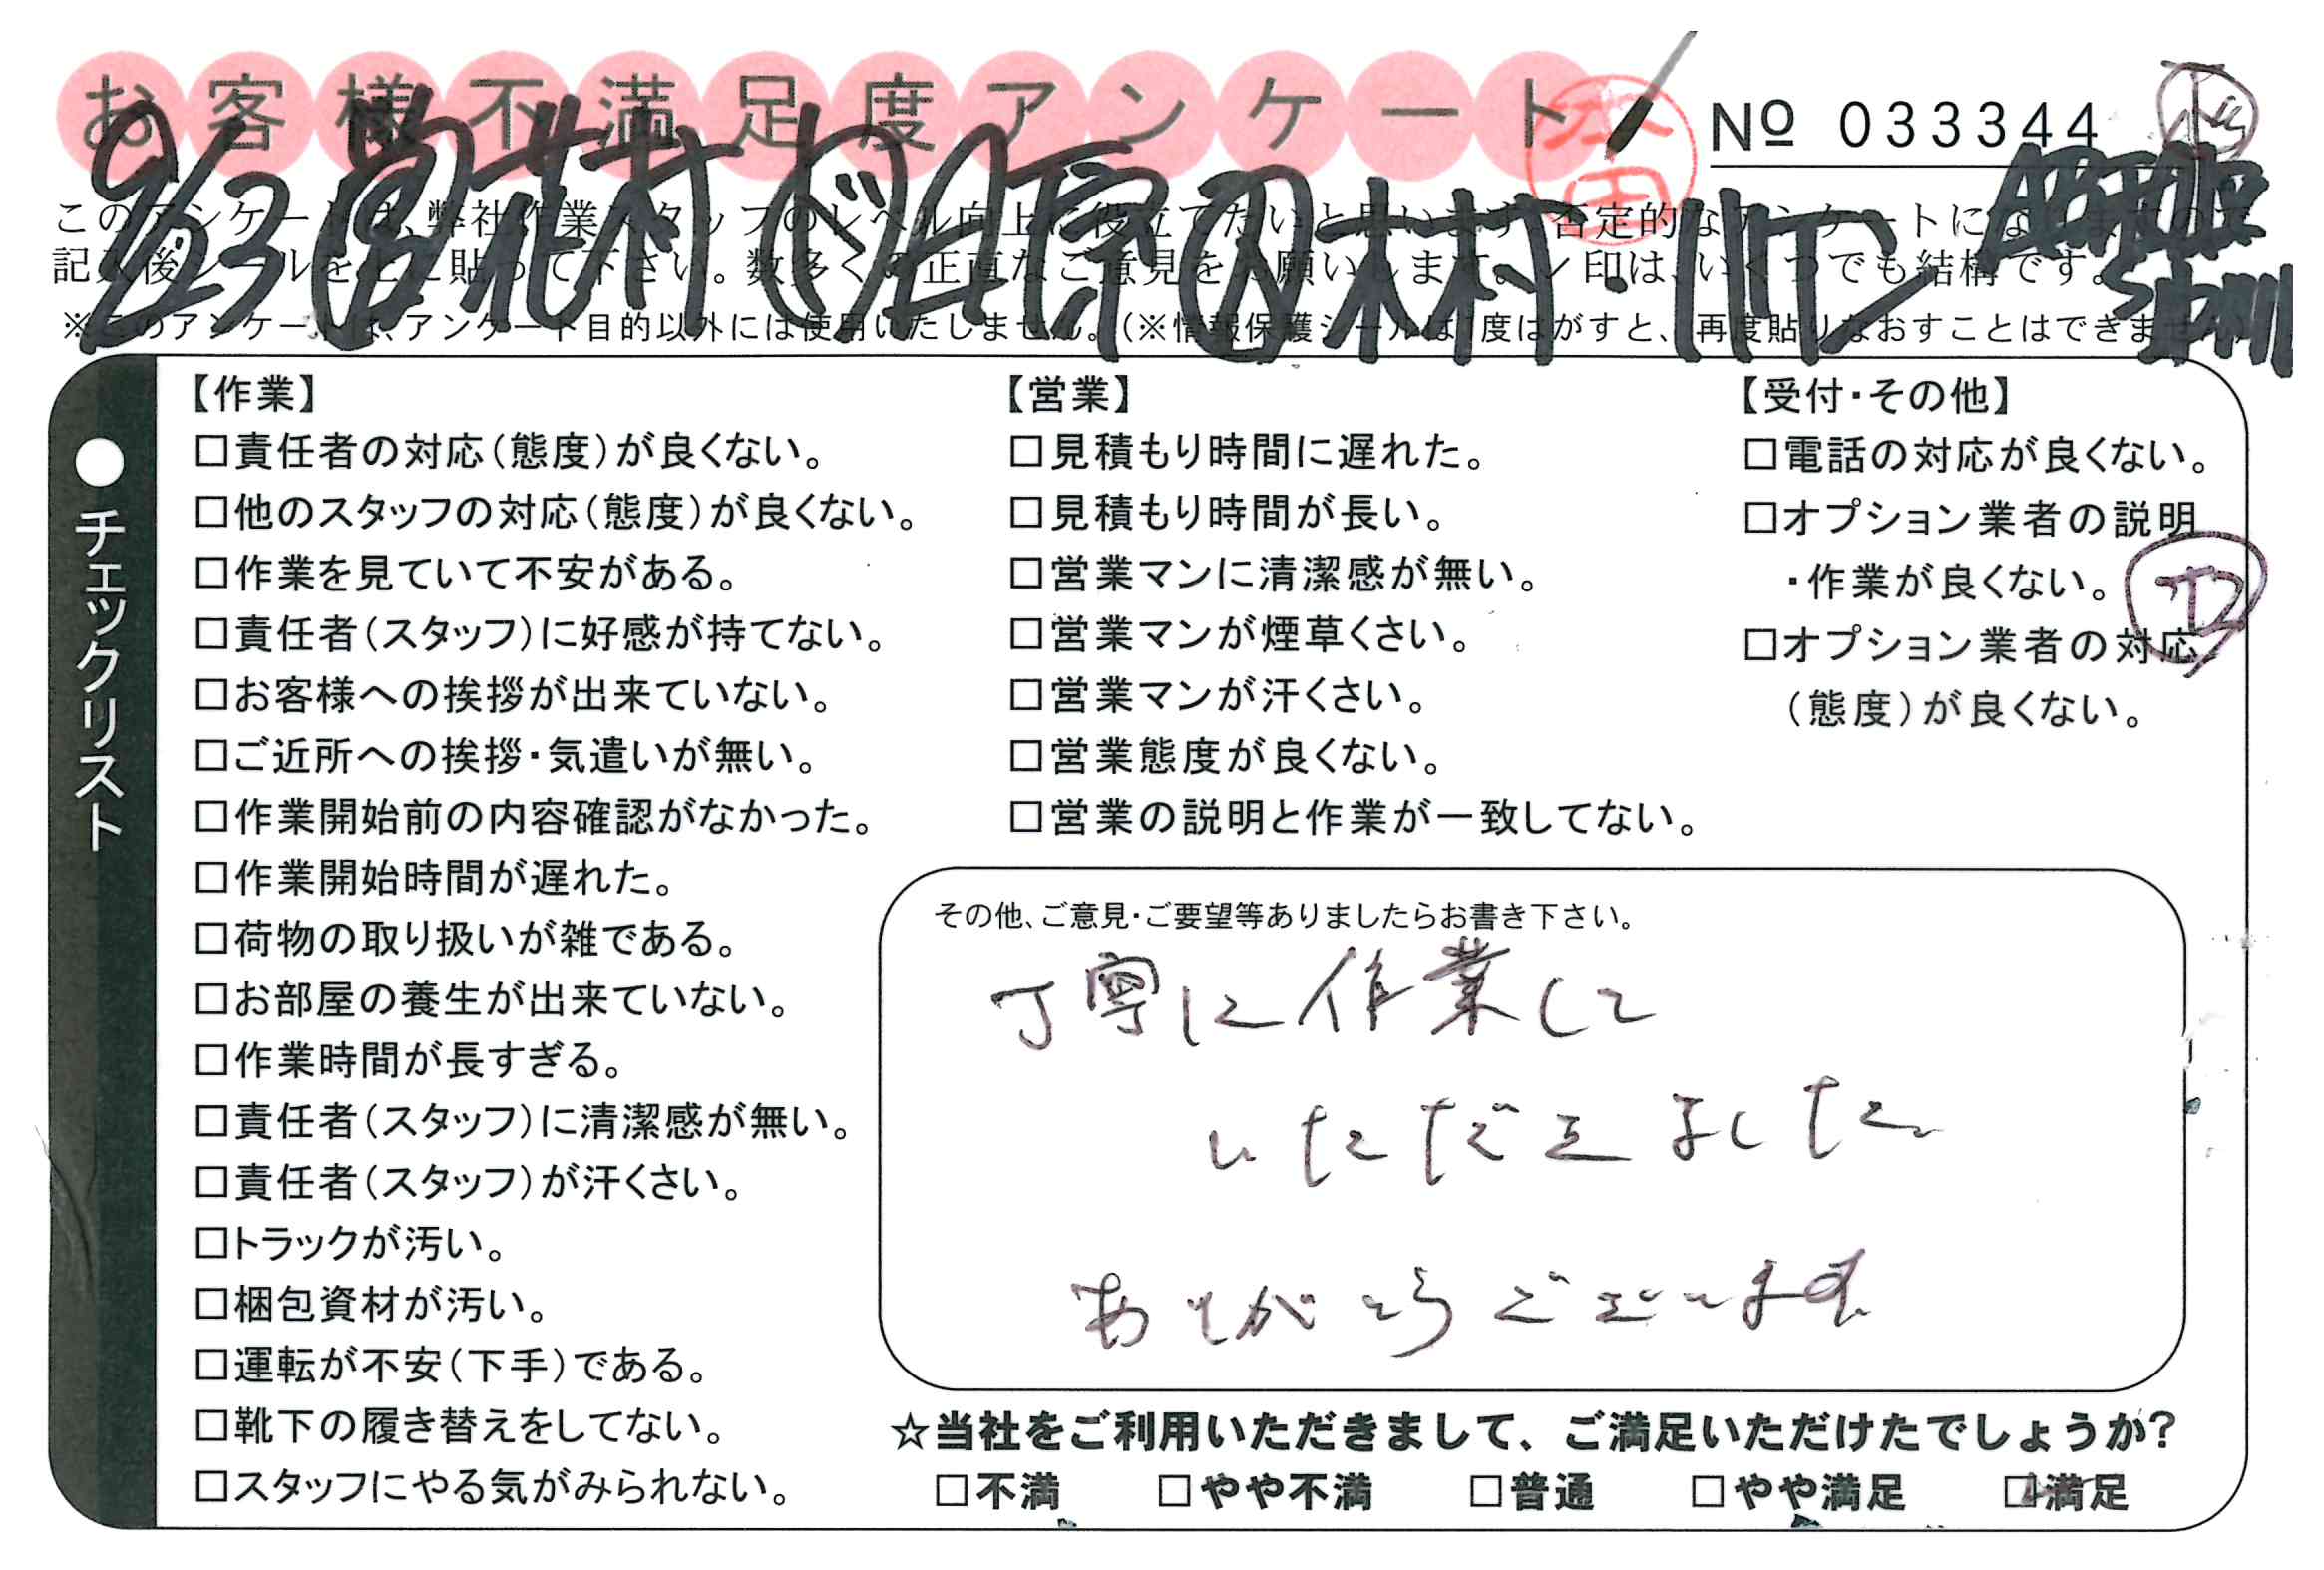 お客様不満足度アンケート
№ 033344
このアンケートは、弊社作業スタッフのレベル向上に役立てたいと思います。否定的なアンケートに
記入後シールを上に貼って下さい。数多くの正直なご意見をお願いします。レ印は、いくつでも結構です。
※このアンケートは、アンケート目的以外には使用いたしません。(※情報保護シールは1度はがすと、再度貼りなおすことはできません)
9/23 北村 木村
本田
●チェックリスト
【作業】
□責任者の対応(態度)が良くない。
□他のスタッフの対応(態度)が良くない。
□作業を見ていて不安がある。
□責任者(スタッフ)に好感が持てない。
□お客様への挨拶が出来ていない。
□ご近所への挨拶・気遣いが無い。
□作業開始前の内容確認がなかった。
□作業開始時間が遅れた。
□荷物の取り扱いが雑である。
□お部屋の養生が出来ていない。
□作業時間が長すぎる。
□責任者(スタッフ)に清潔感が無い。
□責任者(スタッフ)が汗くさい。
□トラックが汚い。
□梱包資材が汚い。
□運転が不安(下手)である。
□靴下の履き替えをしてない。
□スタッフにやる気がみられない。
【営業】
□見積もり時間に遅れた。
□見積もり時間が長い。
□営業マンに清潔感が無い。
□営業マンが煙草くさい。
□営業マンが汗くさい。
□営業態度が良くない。
□営業の説明と作業が一致してない。
【受付・その他】
□電話の対応が良くない。
□オプション業者の説明
・作業が良くない。
□オプション業者の対応
(態度)が良くない。
その他、ご意見・ご要望等ありましたらお書き下さい。
丁寧に作業して
いただきました。
ありがとうございます。
☆当社をご利用いただきまして、ご満足いただけたでしょうか?
□不満 □やや不満 □普通 □やや満足 □満足